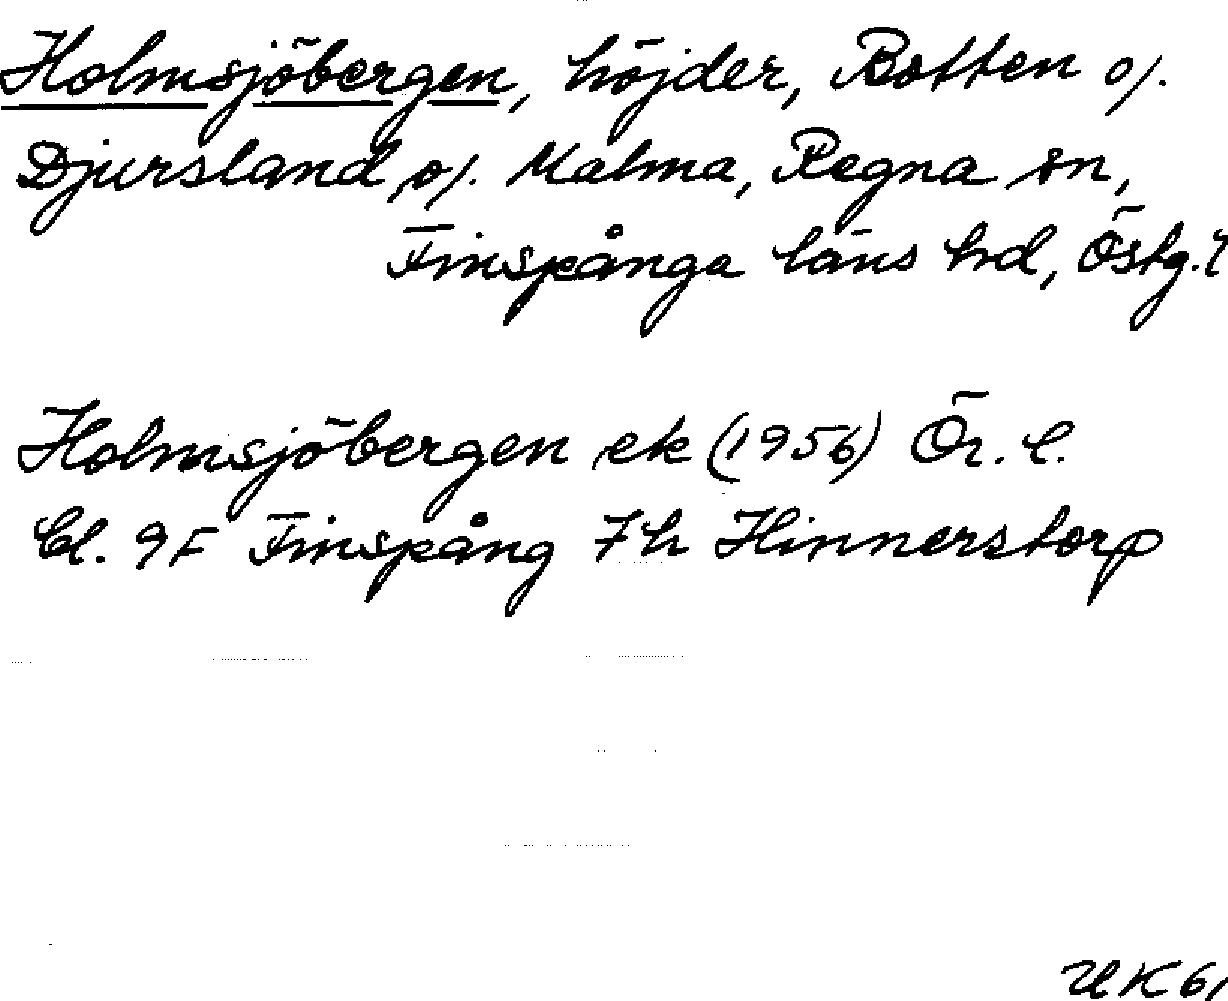 Holmsjöbergen, höjder, Botten o/.
Djursland, o/. Malma, Regna sn,
Finspånga läns hd, Östg. l
Holmsjöbergen ek (1956) Ör. l.
bl. 9F Finspång 7h Hinnerstorp
UK 61